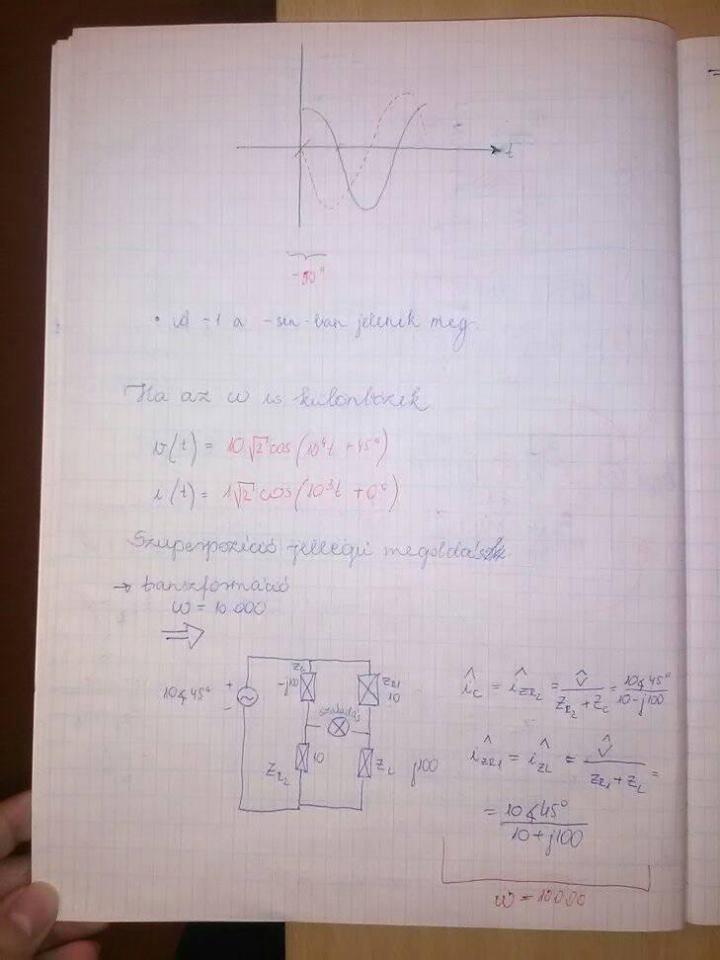 t
-90°
• A -1 a -sin-ban jelenik meg.
Ha az ω is különbözik
v(t) = 10√2 cos(10⁴t + 45°)
i(t) = 1√2 cos(10³t + 0°)
Szuperpozíció jellegű megoldás
→ transzformáció
ω = 10.000
⇒
10∡45°
+
-
Zc
-j100
ZR1
10
szakadás
ZR2
10
ZL
j100
îc = îZR2 = V̂ / (ZR2 + Zc) = 10∡45° / (10-j100)
îZR1 = îZL = V̂ / (ZR1 + ZL) =
= 10∡45° / (10+j100)
ω = 10000